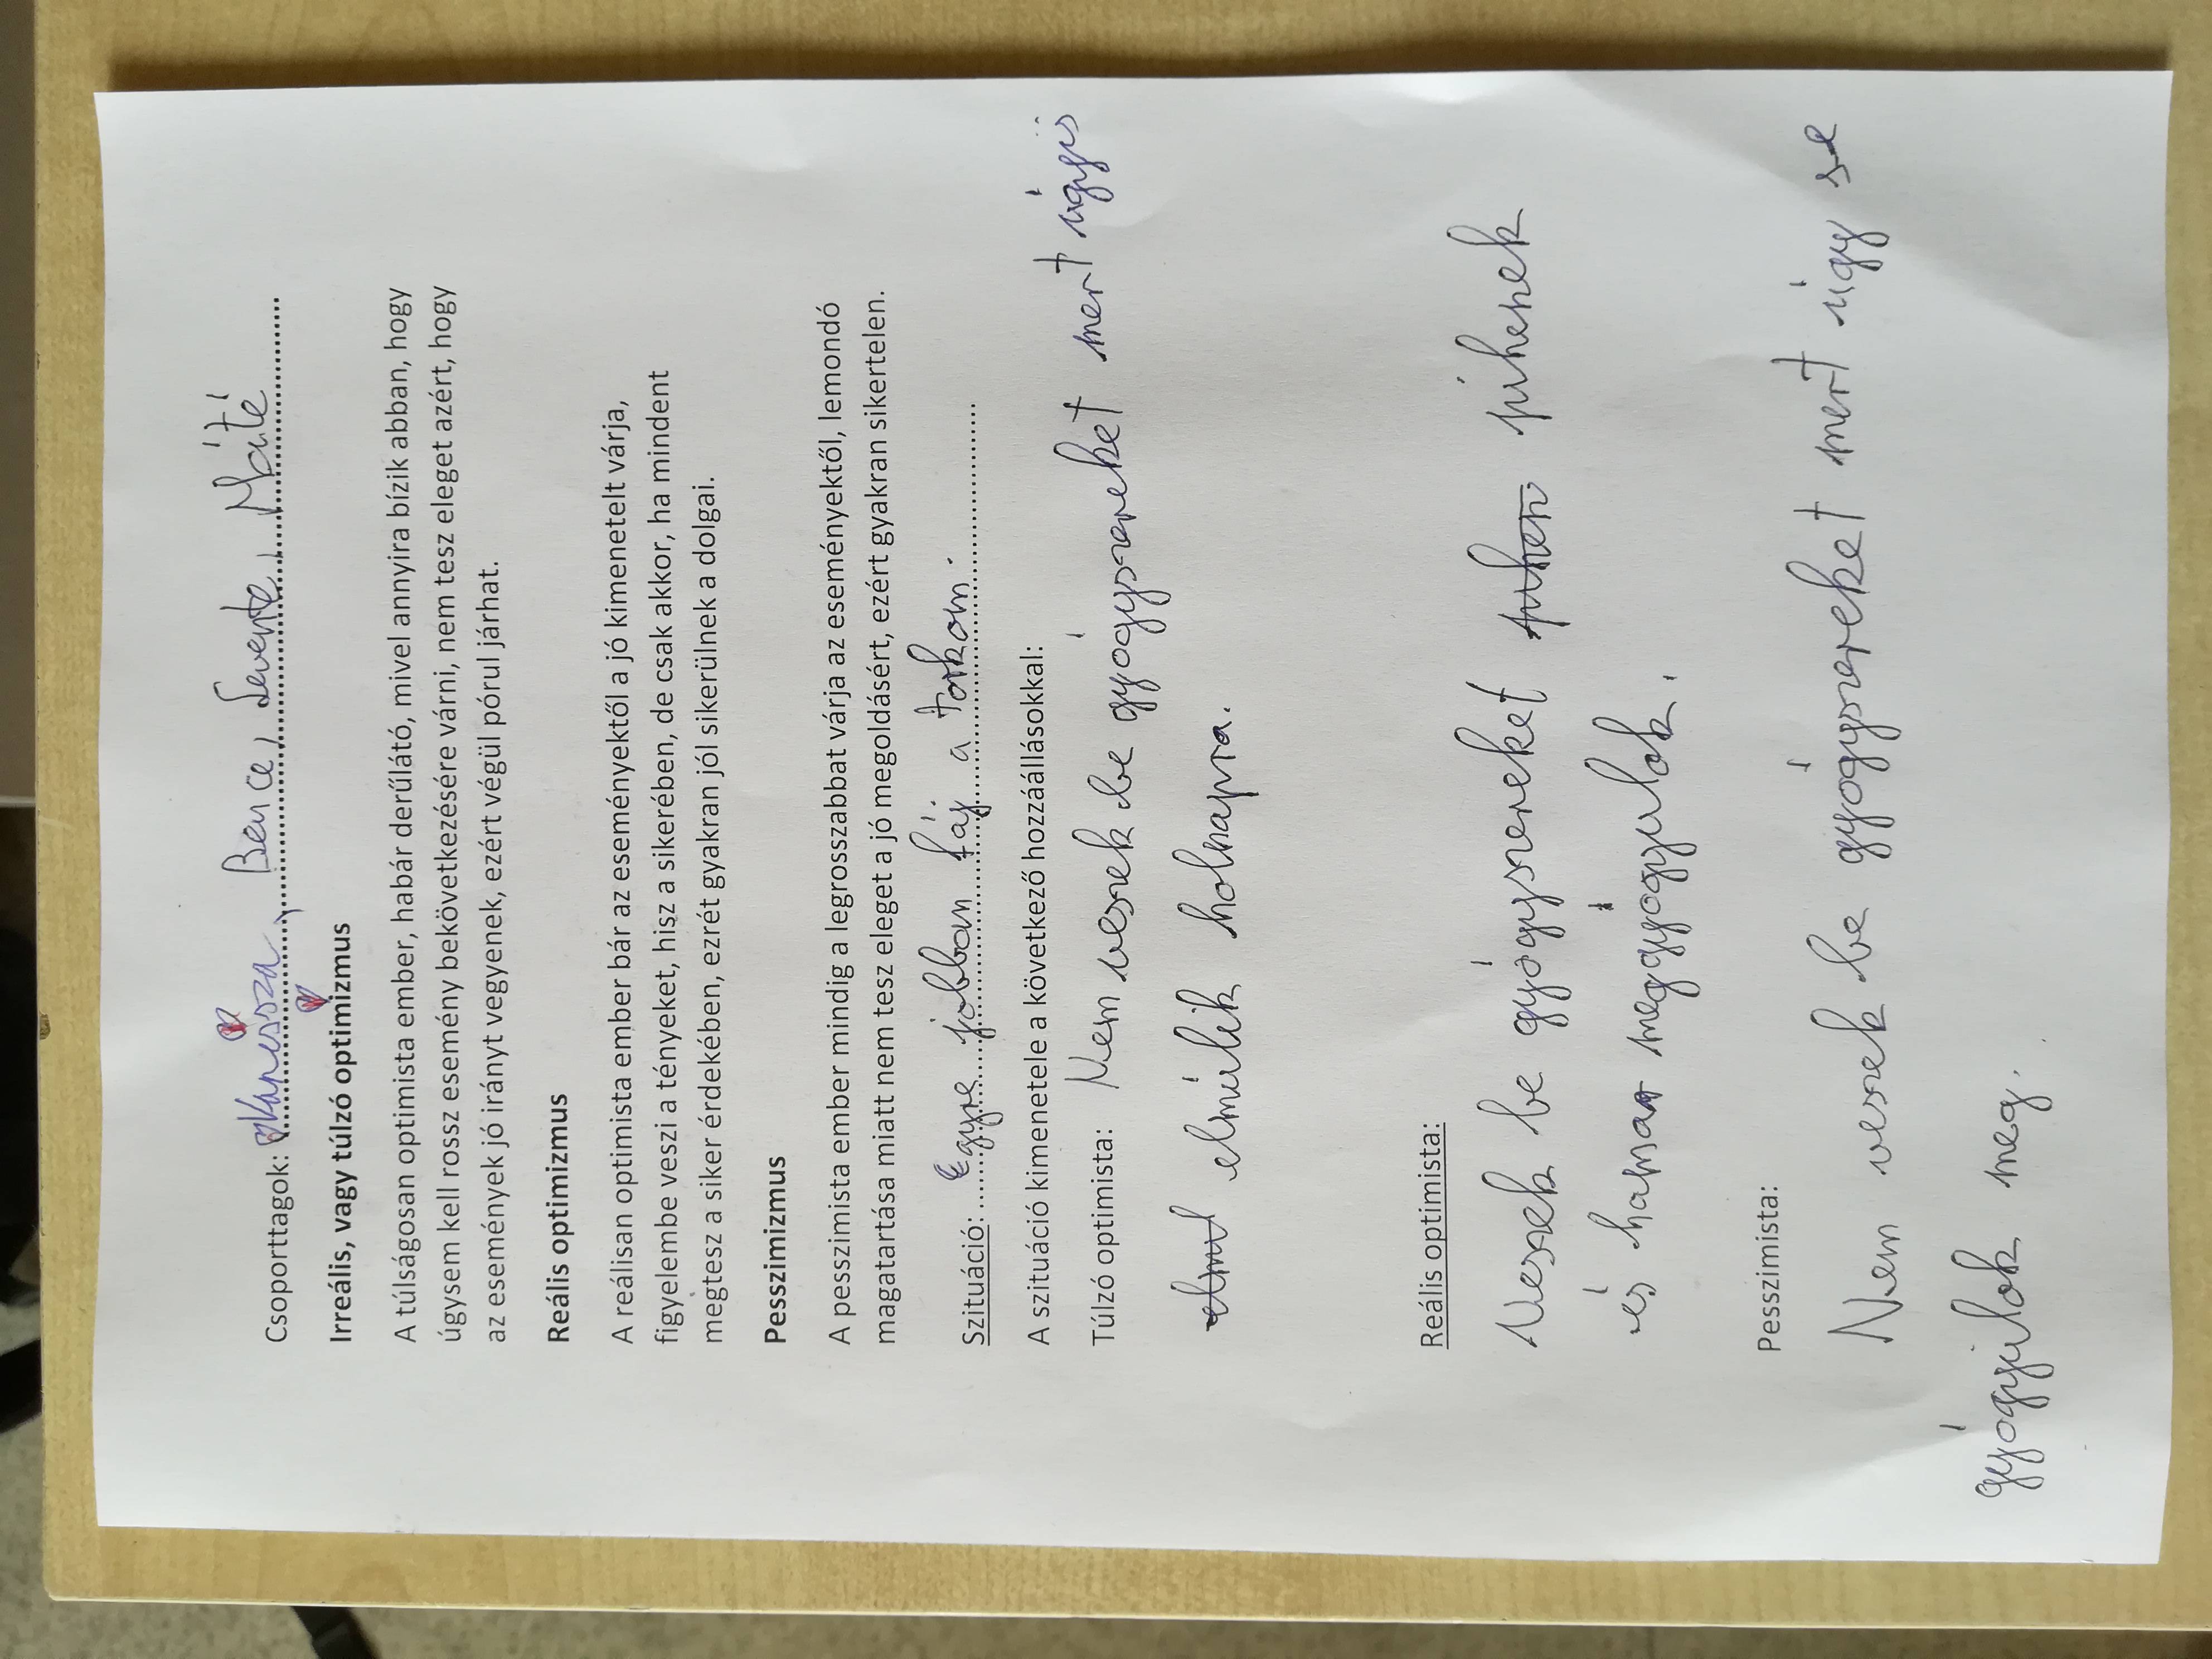 Csoporttagok: Vanessza, Bence, Levente, Máté
Irreális, vagy túlzó optimizmus
A túlságosan optimista ember, habár derűlátó, mivel annyira bízik abban, hogy
úgysem kell rossz esemény bekövetkezésére várni, nem tesz eleget azért, hogy
az események jó irányt vegyenek, ezért végül pórul járhat.
Reális optimizmus
A reálisan optimista ember bár az eseményektől a jó kimenetelt várja,
figyelembe veszi a tényeket, hisz a sikerében, de csak akkor, ha mindent
megtesz a siker érdekében, ezrét gyakran jól sikerülnek a dolgai.
Pesszimizmus
A pesszimista ember mindig a legrosszabbat várja az eseményektől, lemondó
magatartása miatt nem tesz eleget a jó megoldásért, ezért gyakran sikertelen.
Szituáció: Egyre jobban fáj a torkom.
A szituáció kimenetele a következő hozzáállásokkal:
Túlzó optimista: Nem veszek be gyógyszereket mert úgyis
elmúlik holnapra.
Reális optimista:
Veszek be gyógyszereket pihenek
és hamar meggyógyulok.
Pesszimista:
Nem veszek be gyógyszereket mert úgy se
gyógyulok meg.